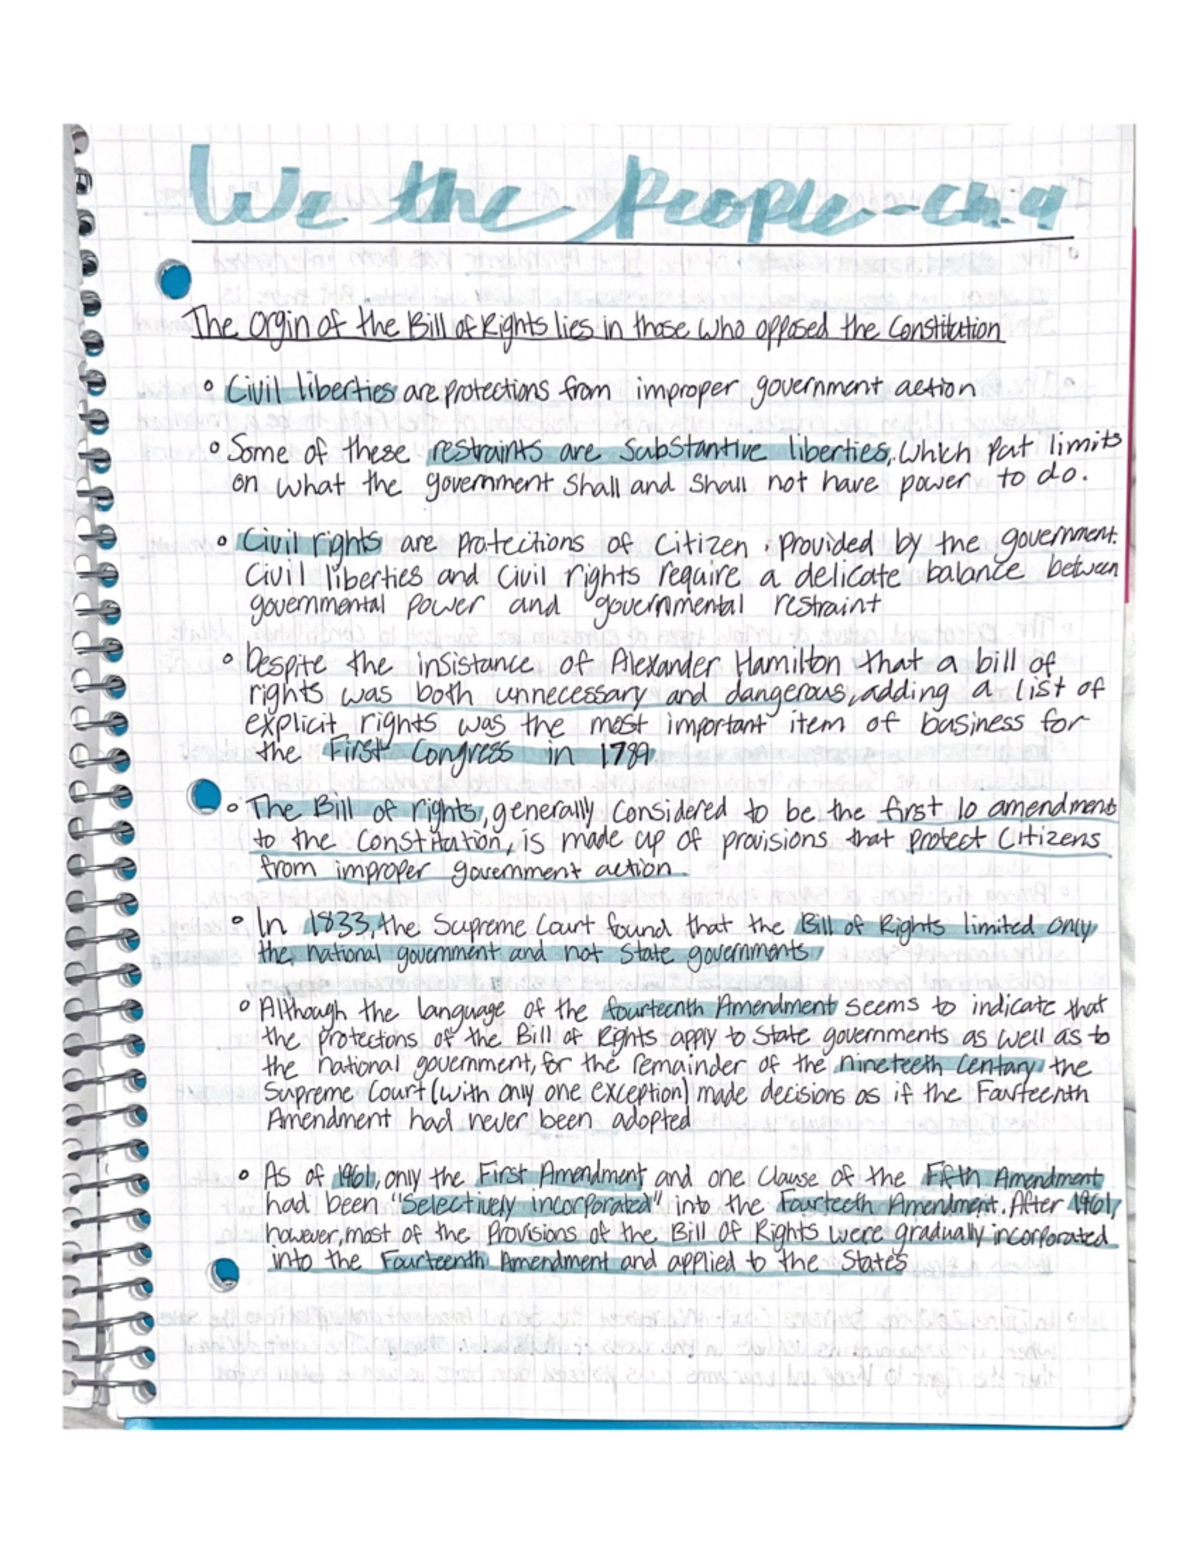 We the People - Ch. 4
The Orgin of the Bill of Rights lies in those who opposed the Constitution
° Civil liberties are protections from improper government action
° Some of these restraints are Substantive liberties, which put limits
on what the government shall and shall not have power to do.
° Civil rights are protections of citizen . provided by the government.
Civil liberties and civil rights require a delicate balance between
governmental power and governmental restraint
° Despite the insistance of Alexander Hamilton that a bill of
rights was both unnecessary and dangerous, adding a list of
explicit rights was the most important item of business for
the First Congress in 1789
° The Bill of rights, generally considered to be the first 10 amendments
to the Constitution, is made up of provisions that protect Citizens
from improper government action.
° In 1833, the Supreme Court found that the Bill of Rights limited only
the national government and not State governments
° Although the language of the fourteenth Amendment seems to indicate that
the protections of the Bill of Rights apply to State governments as well as to
the national government, for the remainder of the nineteeth Century the
Supreme Court (with only one exception) made decisions as if the Fourteenth
Amendment had never been adopted
° As of 1961, only the First Amendment and one Clause of the Fifth Amendment
had been "Selectively incorporated" into the Fourteeth Amendment. After 1961,
however, most of the Provisions of the Bill Of Rights were gradually incorporated
into the Fourteenth Amendment and applied to the States